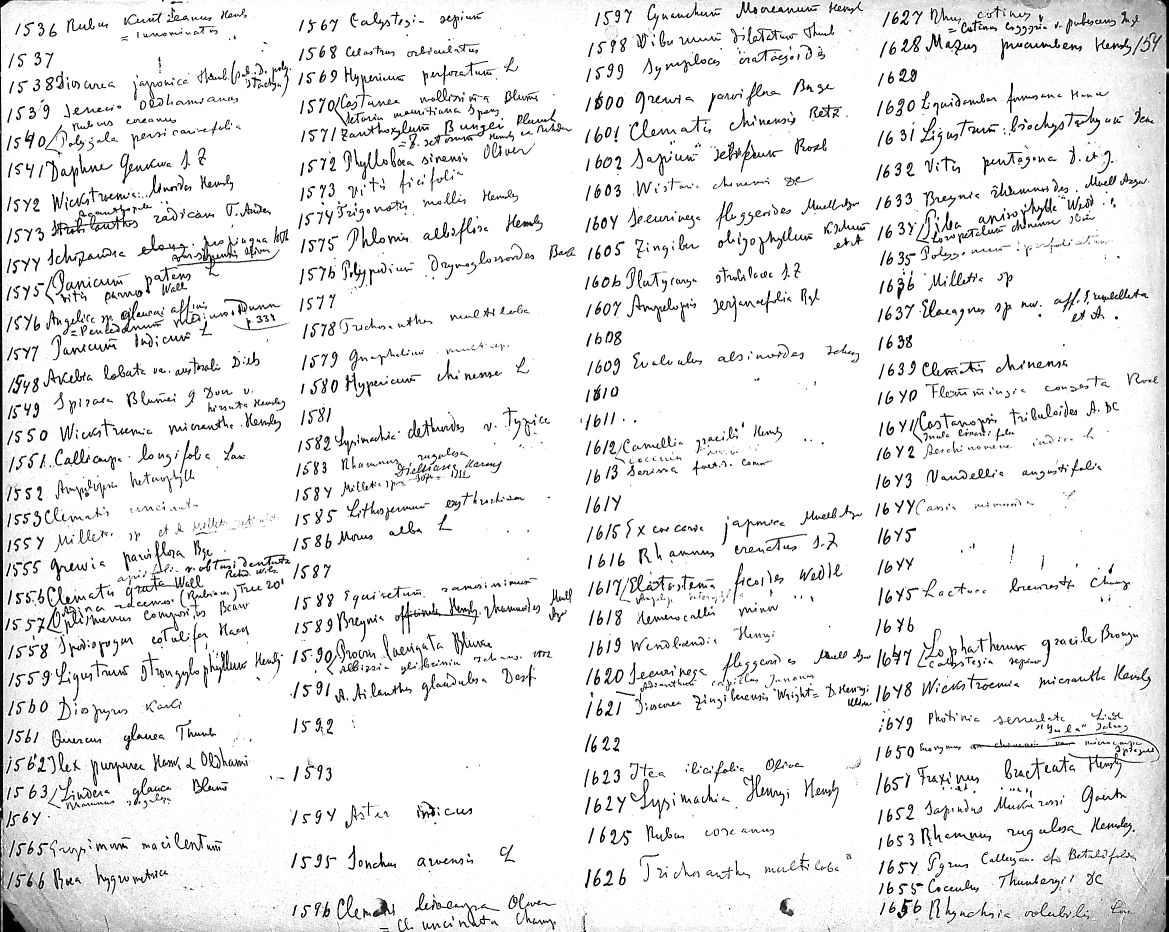 1536 Rubus Kuntzeanus Hemsl
= innominatus
1537
1538 Dioscorea japonica Thunb
1539 Senecio Oldhamianus
Rubus coreanus
1540 Polygala persicariaefolia
1541 Daphne Genkwa S. Z
1542 Wickstroemia Hemsly
1543 radicans T. Anders
1544 Schizandra elong. propinqua
1545 Panicum patens L
Vitis Wall
1546 Angelica sp affinis
= Peucedanum medicum Dunn
p 331
1547 Panicum Indicum L
1548 Akebia lobata va. australis Diels
1549 Spiraea Blumei G Don v.
hirsuta Hemsley
1550 Wickstroemia micrantha Hemsley
1551 Callicarpa longifolia Lam
1552 Ampelopsis heterophylla
1553 Clematis uncinata
1554 Milletia sp
1555 Grewia parviflora Bge
1556 Clematis grata Wall
racemosa (Rubiac.) Tree 20'
1557 Oplismenus compositus Beauv
1558 Spodiopogon cotulifer Hack
1559 Ligustrum strongylophyllum Hemsl
1560 Diospyros Kaki
1561 Quercus glauca Thunb
1562 Ilex purpurea Hassk & Oldhami
1563 Lindera glauca Blume
Rhamnus rugulosa
1564
1565 macilentum
1566 Boea hygrometrica
1567 Calystegia sepium
1568 Celastrus orbiculatus
1569 Hypericum perforatum L
1570 Castanea mollissima Blume
Setaria mauritiana Spreng
1571 Zanthoxylum Bungei Planch
= Z. setosum Hemsl ex Rehder
1572 Phylloboea sinensis Oliver
1573 Vitis ficifolia
1574 Trigonotis mollis Hemsly
1575 Phlomis albiflora Hemsly
1576 Polypodium Drymoglossoides Bake
1577
1578 Trichosanthes multiloba
1579 Gnaphalium multicep.
1580 Hypericum chinense L
1581
1582 Lysimachia clethroides v. typica
1583 Rhamnus rugulosa
1584 Milletia Dielsiana Harms
1585 Lithospermum erythrorhizon
1586 Morus alba L
1587
1588 Equisetum ramosissimum
1589 Breynia officinalis Hemsl. rhamnoides Muell
Agv
1590 Procris laevigata Blume
Albizzia
1591 A. Ailanthus glandulosa Desf
1592
1593
1594 Aster indicus
1595 Sonchus arvensis L
1596 Clematis leiocarpa Oliver
= Cl. uncinata Champ
1597 Cynanchum Mooreanum Hemsl
1598 Viburnum dilatatum Thunb
1599 Symplocos crataegoides
1600 Grewia parviflora Bunge
1601 Clematis chinensis Retz.
1602 Sapium sebiferum Roxb
1603 Wistaria chinensis DC
1604 Securinega fluggeoides Muell Agv
1605 Zingiber oligophyllum K. Schum
1606 Platycarya strobilacea S. Z
1607 Ampelopsis serjanaefolia Bge
1608
1609 Evolvulus alsinoides
1610 "
1611 ..
1612 Camellia gracilis Hemsl
1613 Serissa foet.
1614
1615 Excoecaria japonica Muell Agv
1616 Rhamnus crenatus S. Z
1617 Elatostema ficoides Wedd
1618 Hemerocallis minor
1619 Wendlandia Henryi
1620 Securinega fluggeoides Muell Agv
Adianthum capillus Junonis
1621 Dioscorea Zingiberensis Wright = D. Henryi
Uline
1622
1623 Itea ilicifolia Oliver
1624 Lysimachia Henryi Hemsly
1625 Rubus coreanus
1626 Trichosanthes multiloba
1627 Rhus cotinus
= Cotinus coggygria v. pubescens Engl
1628 Mazus procumbens Hemsly
154
1629
1630 Liquidambar formosana Hance
1631 Ligustrum brachystachyum Dcne
1632 Vitis pentagona D. et G.
1633 Breynia rhamnoides. Muell Argov.
1634 Pilea anisophylla Wedd
Loropetalum chinense Oliv
1635 Polygonum perfoliatum
1636 Milletia sp
1637 Elaeagnus sp nov. aff. E. umbellata
et A.
1638
1639 Clematis chinensis
1640 Flemmingia congesta Roxb
1641 Castanopsis tribuloides A. DC
Inula linariaefolia
1642 Aeschinomene indica L
1643 Vandellia angustifolia
1644 Cassia mimosoides L
1645
1644
1645 Lactuca brevirostris Champ
1646
1647 Lophatherum gracile Brongn
Calystegia sepium
1648 Wickstroemia micrantha Hemsly
1649 Photinia serrulata Lindl
1650 Evonymus microcarpa
Sprague
1651 Fraxinus bracteata Hemsly
1652 Sapindus Mukorossi Gaertn
1653 Rhamnus rugulosa Hemsley.
1654 Pyrus Calleryan. cfr Betulifolia
1655 Cocculus Thunbergii DC
1656 Rhynchosia volubilis Lour